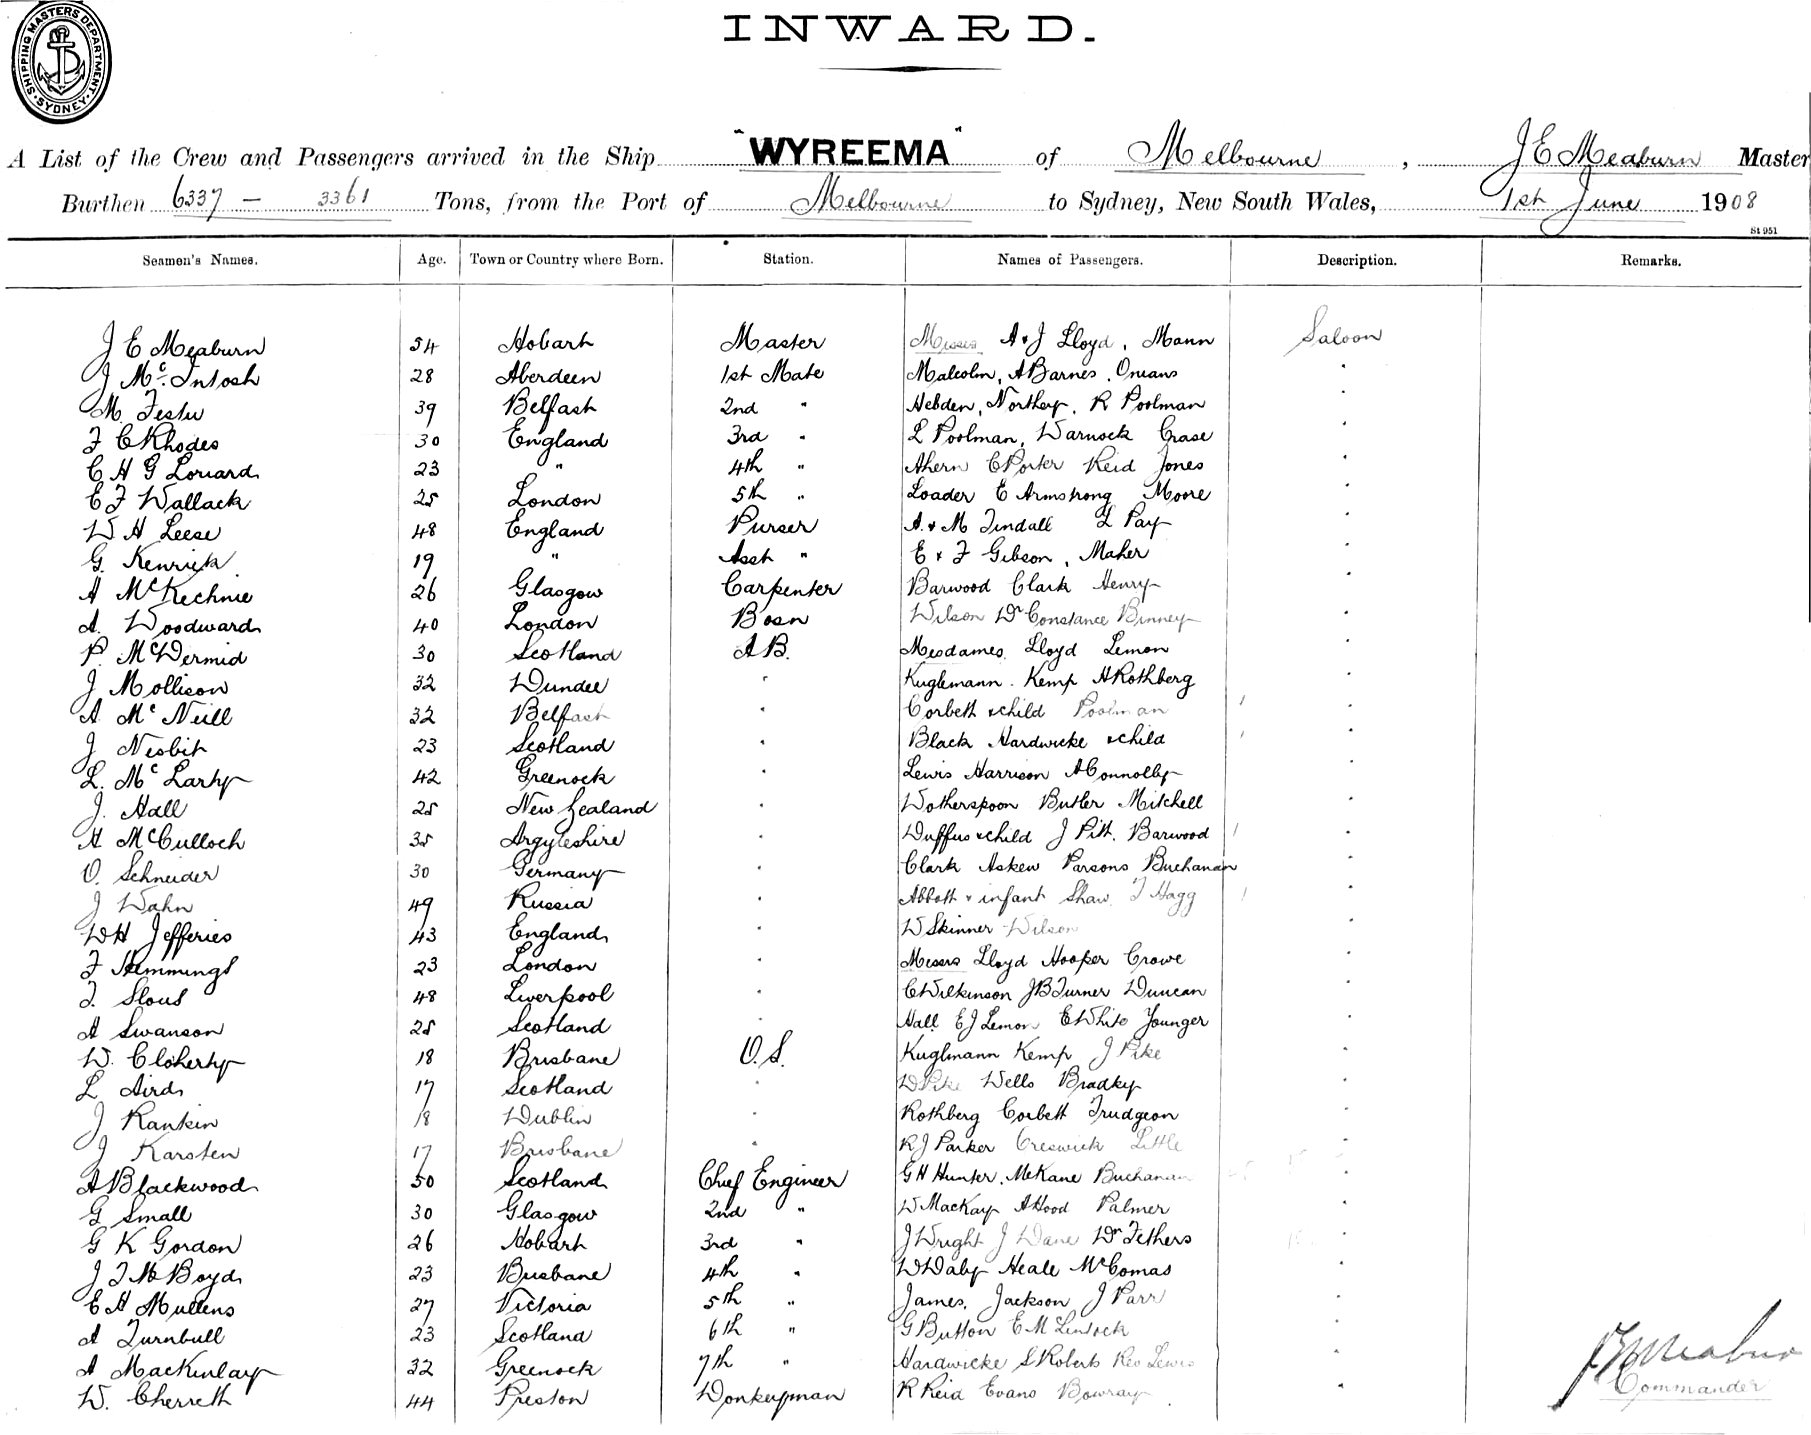 SHIPPING MASTERS DEPARTMENT. SYDNEY
INWARD.
A List of the Crew and Passengers arrived in the Ship "WYREEMA" of Melbourne, J E Meaburn Master
Burthen 6337 — 3361 Tons, from the Port of Melbourne to Sydney, New South Wales, 1st June 1908
St 951
Seamen's Names. Age. Town or Country where Born. Station. Names of Passengers. Description. Remarks.
J E Meaburn 54 Hobart Master Misses A & J Lloyd, Mann Saloon
J McIntosh 28 Aberdeen 1st Mate Malcolm, A Barnes, Onians "
M. Festu 39 Belfast 2nd " Hebden, Northey, R Poolman "
F C Rhodes 30 England 3rd " L Poolman, Warnock Crase "
C H G Loriard 23 " 4th " Ahern C Porter Reid Jones "
E F Wallack 25 London 5th " Loader E Armstrong Moore "
W H Leese 48 England Purser A. & M Tindall L Pay "
G. Kenrick 19 " Asst " E & F Gibson, Maher "
A McKechnie 26 Glasgow Carpenter Barwood Clark Henry "
A. Woodward 40 London Bosn Wilson Dr Constance Binney "
P. McDermid 30 Scotland A B. Mesdames Lloyd Lemon "
J Mollison 32 Dundee " Kuglemann. Kemp A Rothberg "
A McNeill 32 Belfast " Corbett & child Poolman "
J Nesbit 23 Scotland " Black Hardwicke & child "
L. McLarty 42 Greenock " Lewis Harrison A Connolly "
J. Hall 25 New Zealand " Wotherspoon Butler Mitchell "
A McCulloch 35 Argyleshire " Duffus & child J Pitt. Barwood "
O. Schneider 30 Germany " Clark Askew Parsons Buchanan "
J Wahn 49 Russia " Abbott & infant Shaw. T Hagg "
W H Jefferies 43 England " W Skinner Wilson "
F Hemmings 23 London " Messrs Lloyd Hooper Crowe "
T. Slous 48 Liverpool " C Wilkinson J B Turner Duncan "
A Swanson 25 Scotland " Hall E J Lemon E White Younger "
W. Cloherty 18 Brisbane O. S. Kuglmann Kemp J Pike "
L Aird 17 Scotland " W Pike Wells Bradley "
J Rankin 18 Dublin " Rothberg Corbett Trudgeon "
J Karsten 17 Brisbane " R J Parker Creswick Little "
A Blackwood 50 Scotland Chief Engineer G H Hunter, McKane Buchanan "
G Small 30 Glasgow 2nd " W MacKay A Hood Palmer "
G K Gordon 26 Hobart 3rd " J Wright J Dane Dr Fethers "
J T McBoyd 23 Brisbane 4th " W Daly Heale McComas "
E H Mullens 27 Victoria 5th " James, Jackson J Parr "
A Turnbull 23 Scotland 6th " G Button E McLintock "
A MacKinlay 32 Greenock 7th " Hardwicke S Roberts Rev Lewis "
W. Cherrett 44 Preston Donkeyman R Reid Evans Bowray "
J E Meaburn
Commander